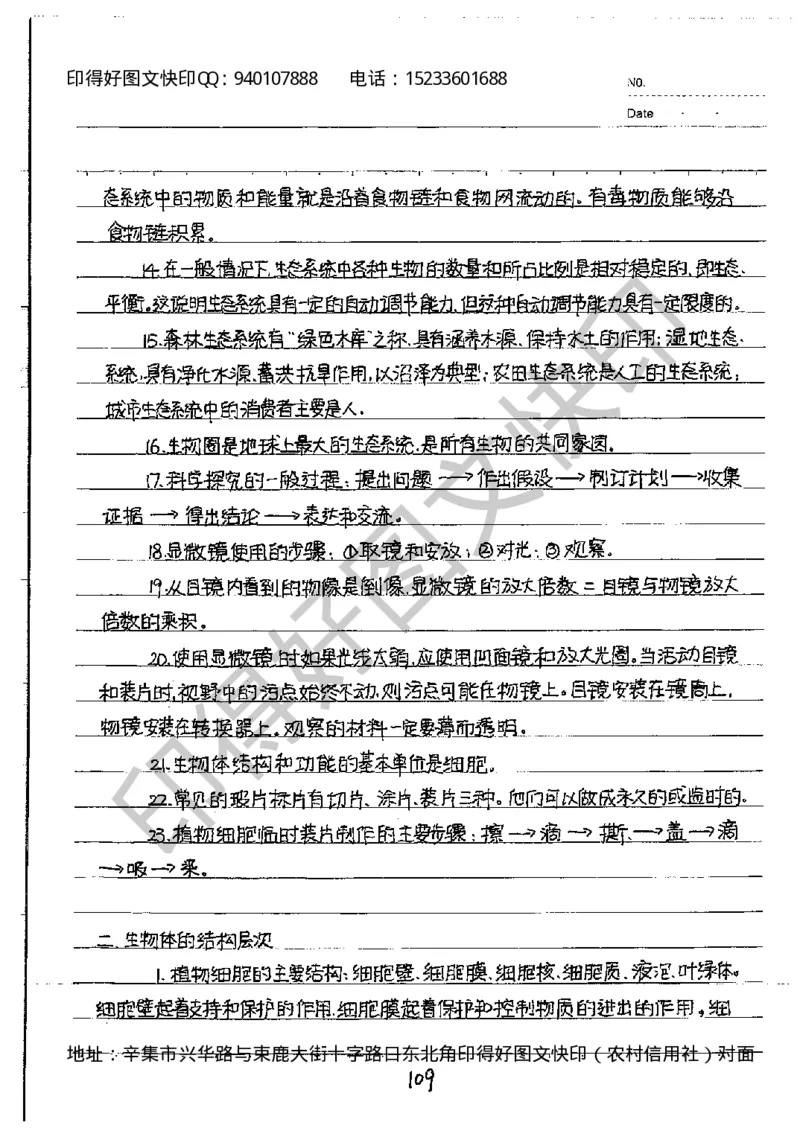 印得好图文快印QQ：940107888 电话：15233601688
No.
Date
态系统中的物质和能量就是沿着食物链和食物网流动的。有毒物质能够沿
食物链积累。
14.在一般情况下,生态系统中各种生物的数量和所占比例是相对稳定的,即生态
平衡。这说明生态系统具有一定的自动调节能力,但这种自动调节能力具有一定限度的。
15.森林生态系统有“绿色水库”之称,具有涵养水源、保持水土的作用；湿地生态
系统,具有净化水源、蓄洪抗旱作用,以沼泽为典型；农田生态系统是人工的生态系统；
城市生态系统中的消费者主要是人.
16.生物圈是地球上最大的生态系统,是所有生物的共同家园。
17.科学探究的一般过程：提出问题→作出假设→制订计划→收集
证据→得出结论→表达和交流。
18.显微镜使用的步骤：①取镜和安放；②对光；③观察。
19.从目镜内看到的物像是倒像,显微镜的放大倍数=目镜与物镜放大
倍数的乘积。
20.使用显微镜时如果光线太弱,应使用凹面镜和放大光圈。当活动目镜
和装片时,视野中的污点始终不动,则污点可能在物镜上。目镜安装在镜筒上,
物镜安装在转换器上。观察的材料一定要薄而透明。
21.生物体结构和功能的基本单位是细胞。
22.常见的玻片标片有切片、涂片、装片三种。他们可以做成永久的或临时的.
23.植物细胞临时装片制作的主要步骤：擦→滴→撕→盖→滴
→吸→染。
二.生物体的结构层次
1.植物细胞的主要结构：细胞壁、细胞膜、细胞核、细胞质、液泡、叶绿体。
细胞壁起着支持和保护的作用,细胞膜起着保护和控制物质的进出的作用。细
地址：辛集市兴华路与束鹿大街十字路口东北角印得好图文快印（农村信用社）对面
109
印得好图文快印